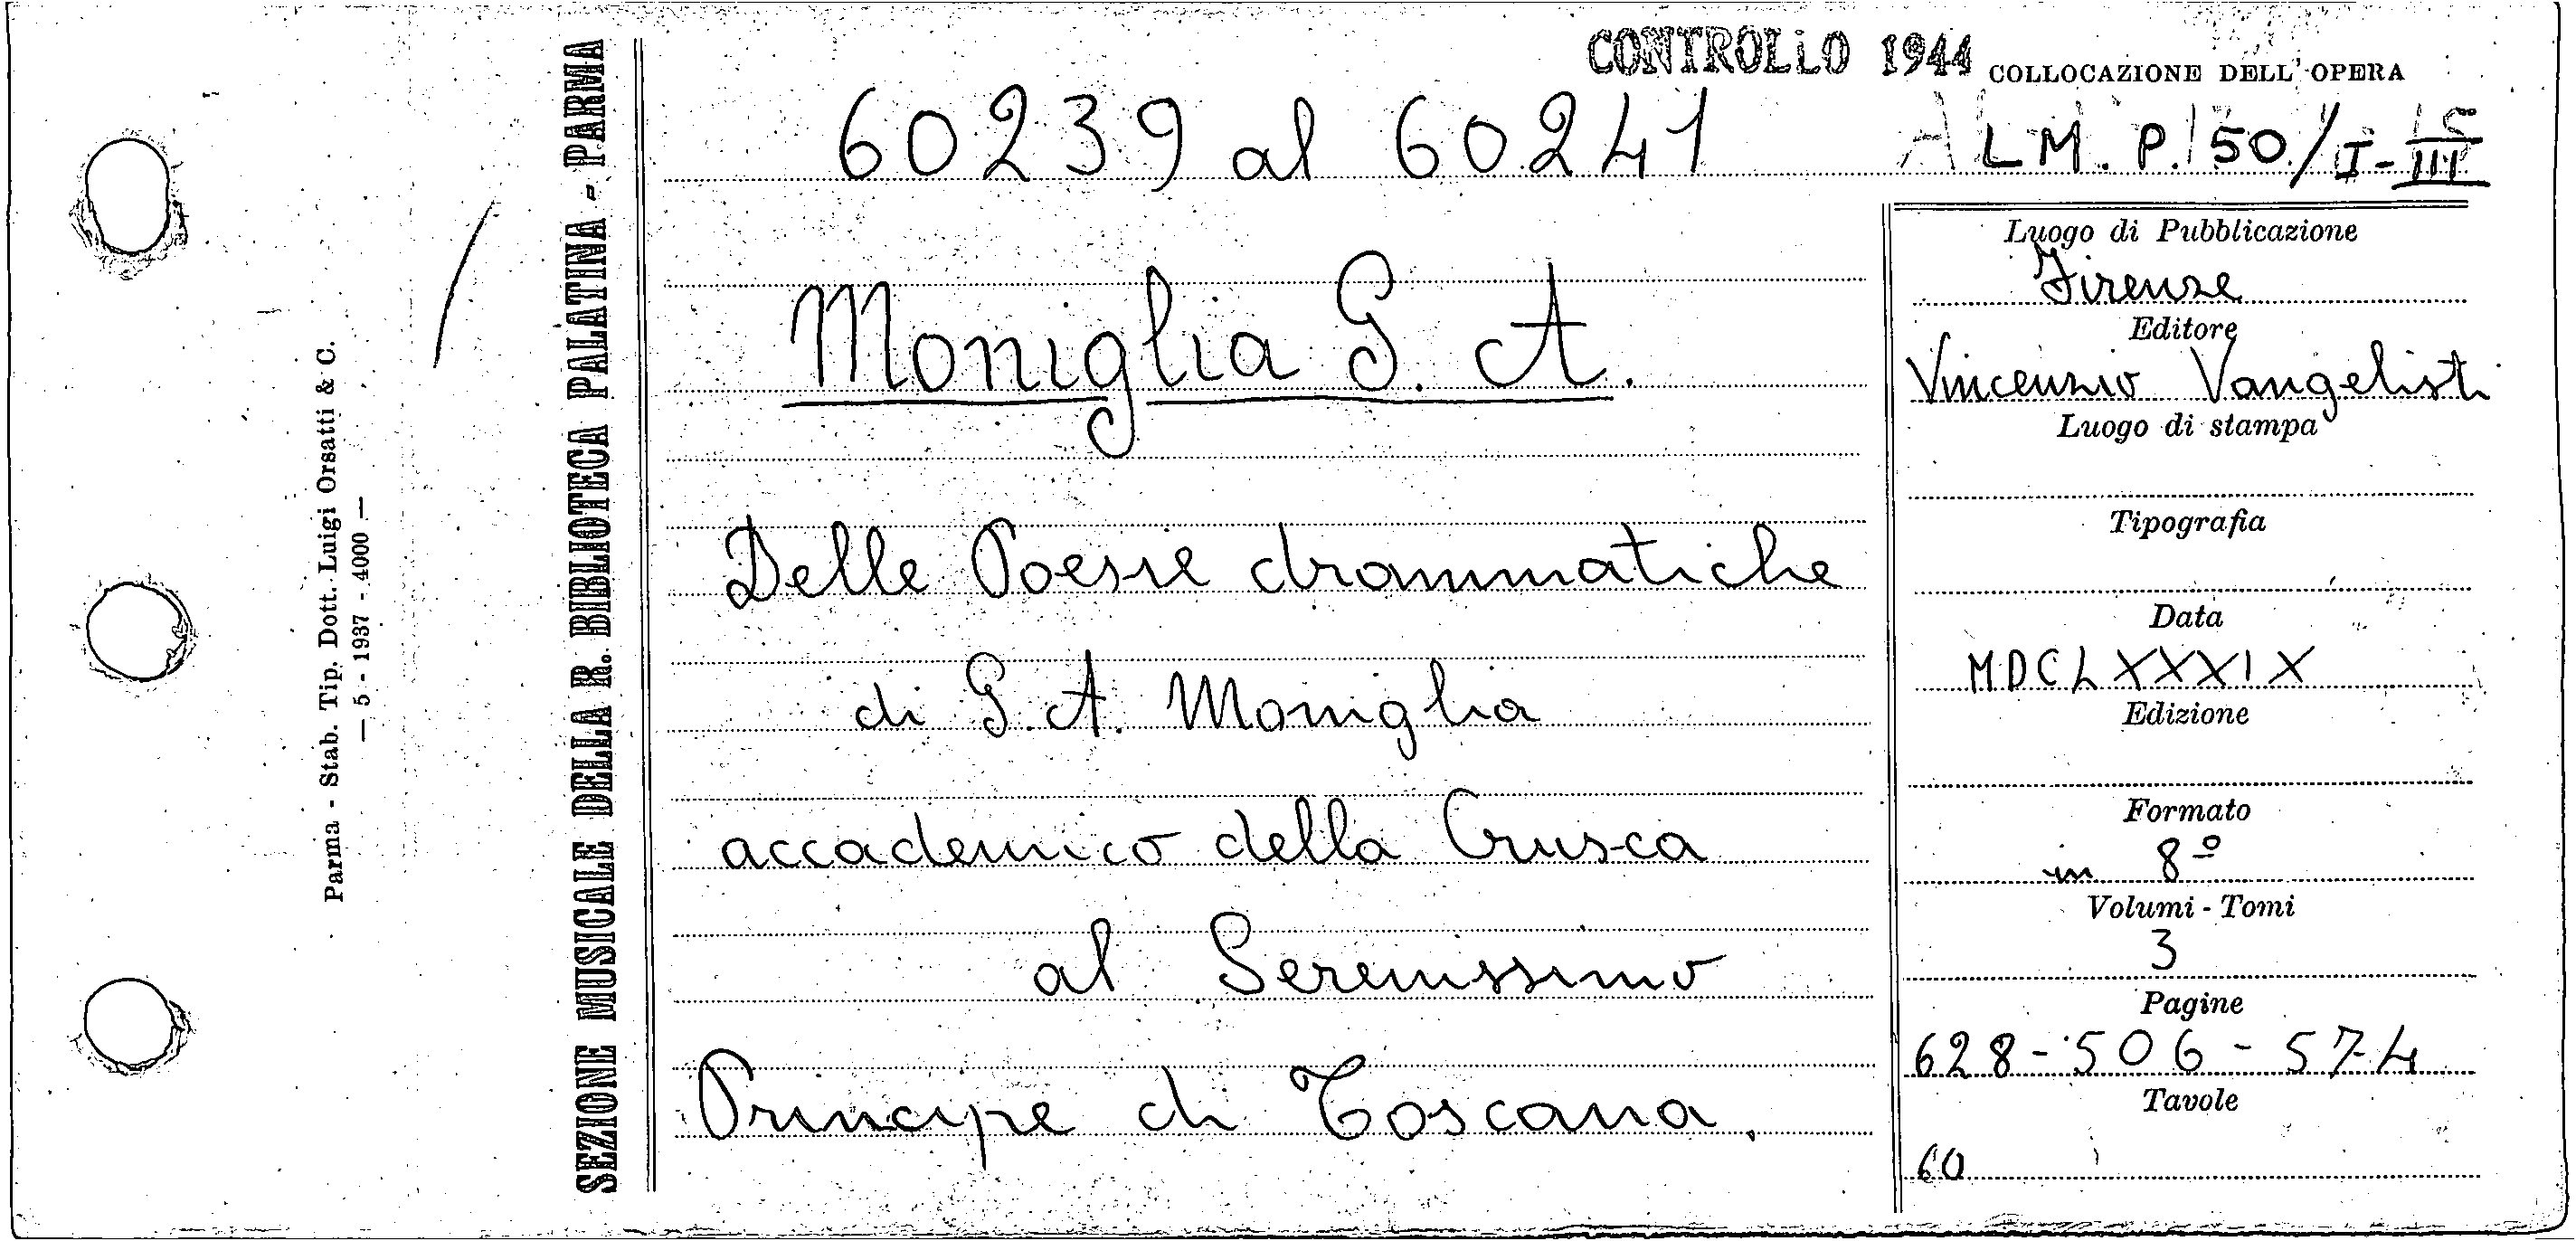 CONTROLLO 1944
COLLOCAZIONE DELL' OPERA
60239 al 60241
LM. P. 50/I-III
Moniglia G. A.
Delle Poesie drammatiche
di G. A. Moniglia
accademico della Crusca
al Serenissimo
Principe di Toscana.
Luogo di Pubblicazione
Firenze
Editore
Vincenzio Vangelisti
Luogo di stampa
Tipografia
Data
MDCLXXXIX
Edizione
Formato
in 8º
Volumi - Tomi
3
Pagine
628 - 506 - 574
Tavole
60
SEZIONE MUSICALE DELLA R. BIBLIOTECA PALATINA - PARMA
Parma - Stab. Tip. Dott. Luigi Orsatti & C.
— 5 - 1937 - 4000 —